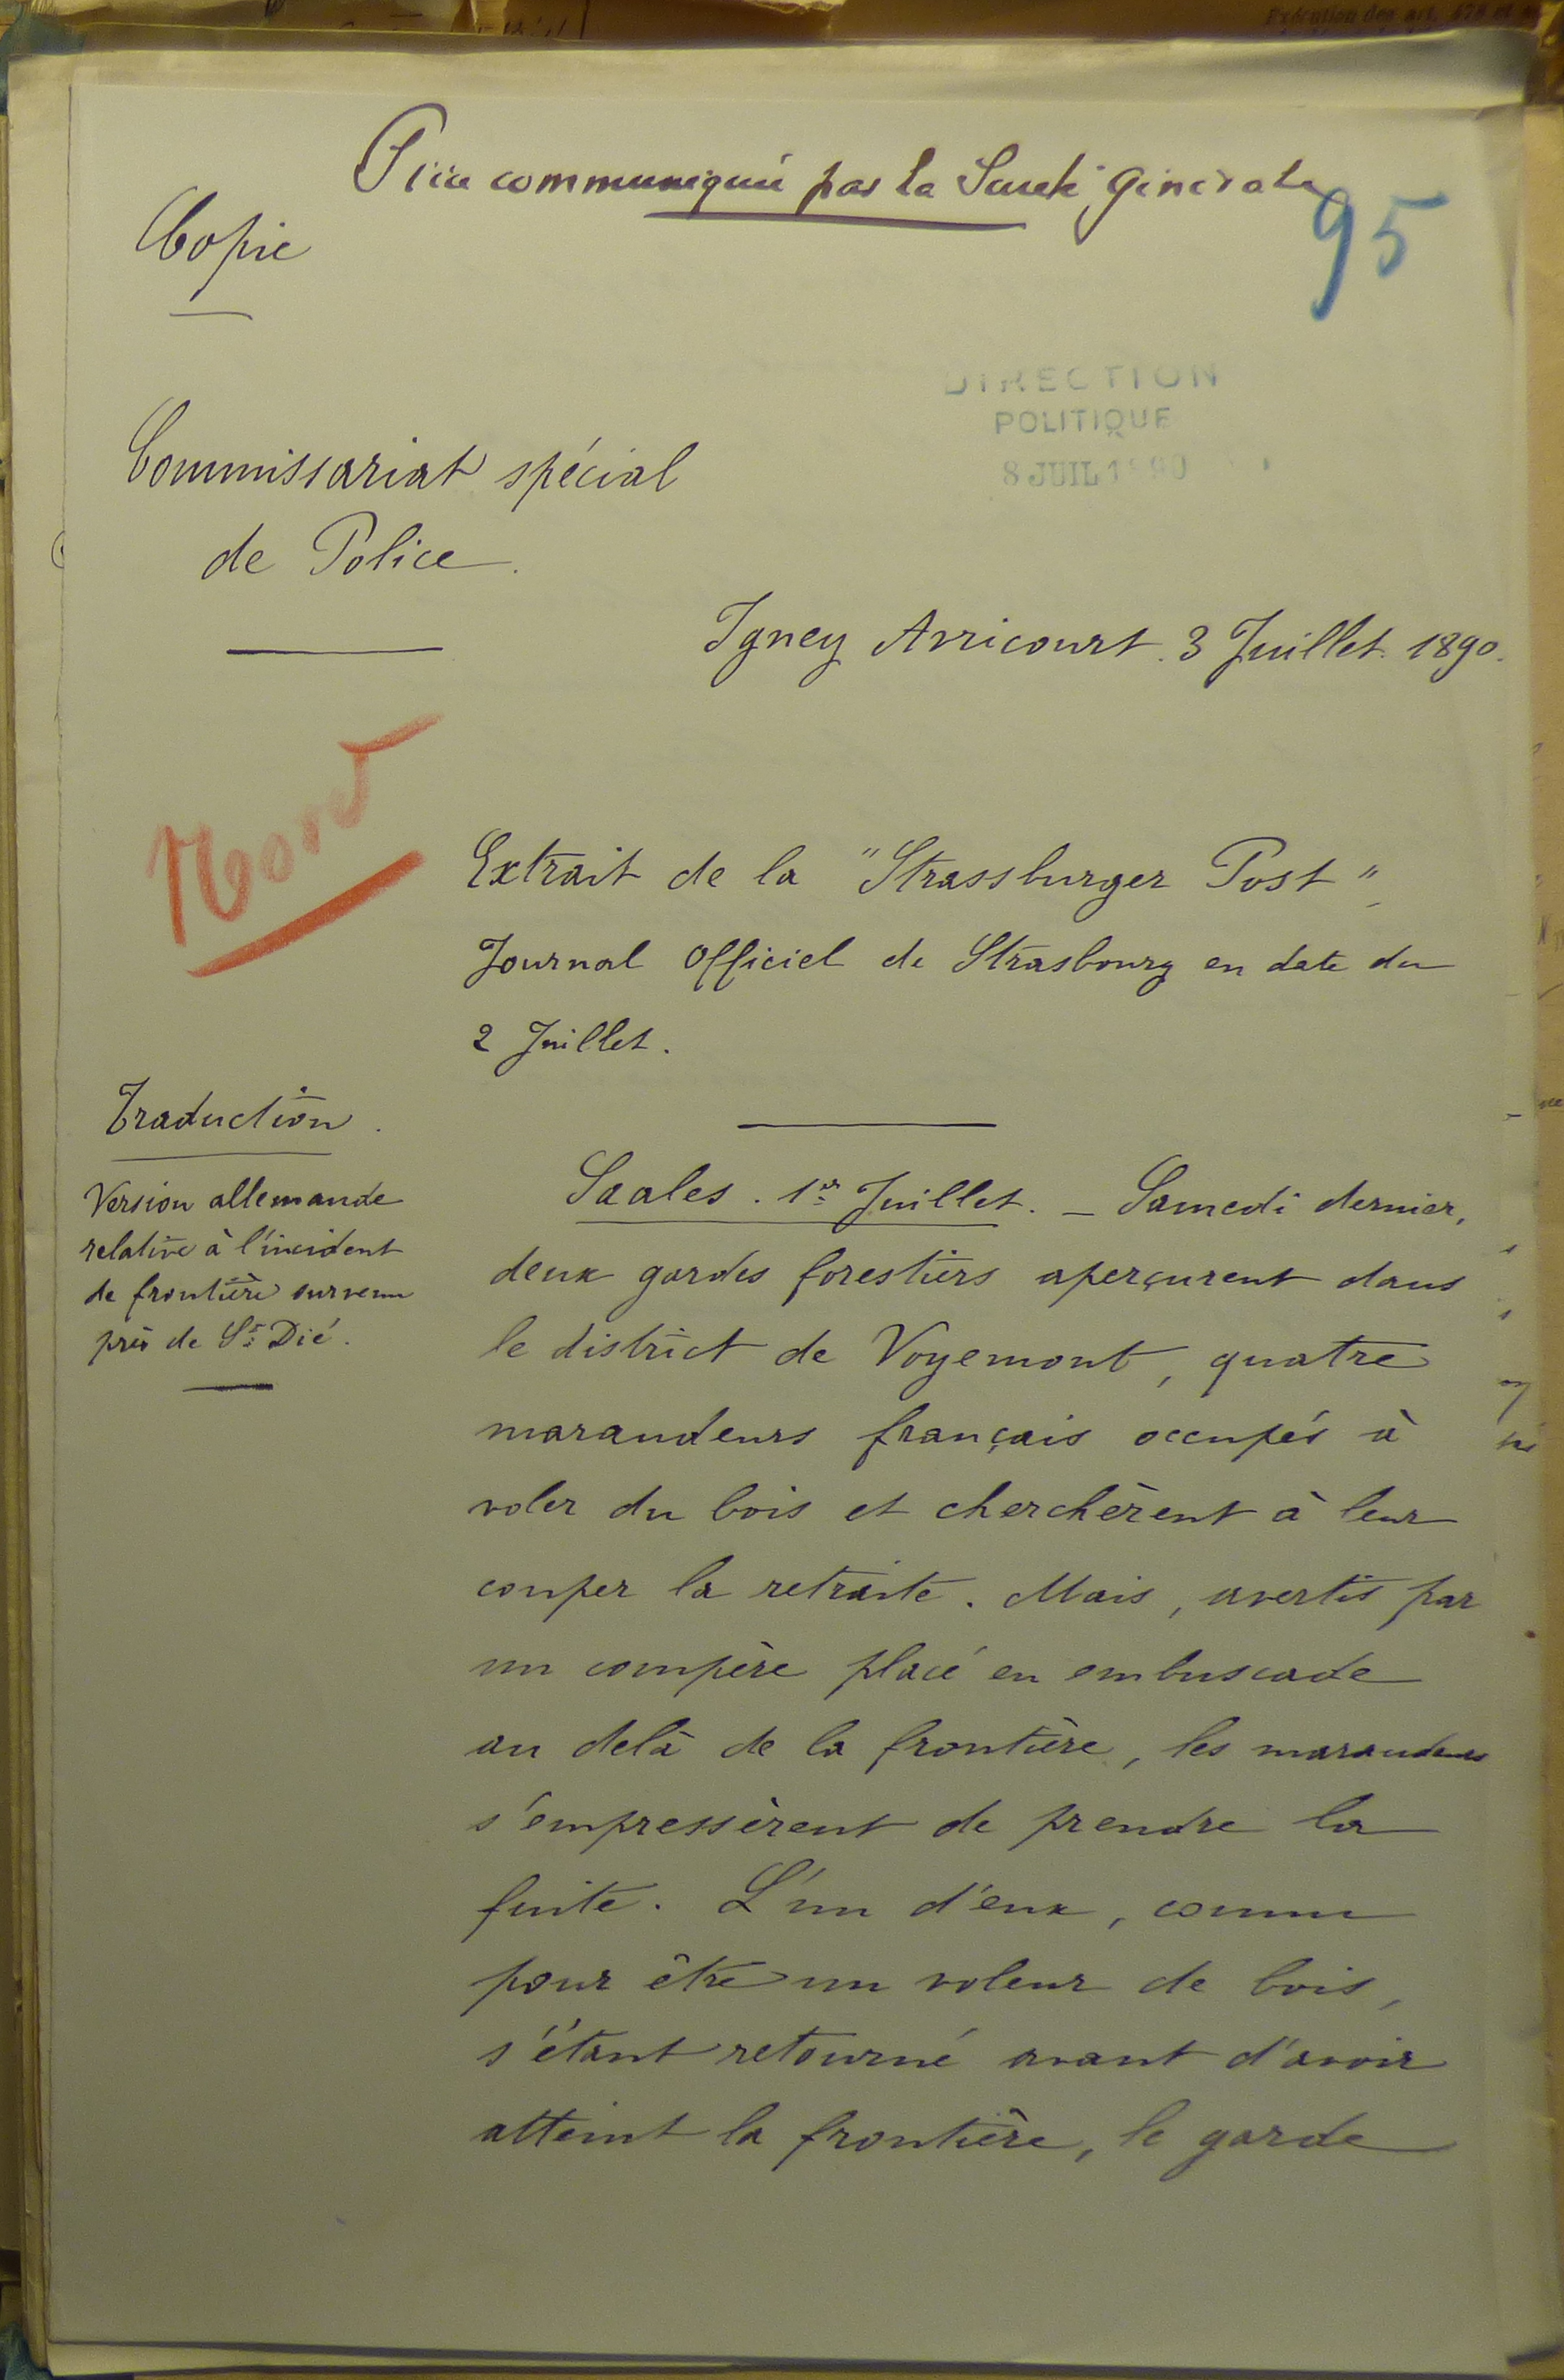 Pièce communiquée par la Sureté Générale
95
Copie
DIRECTION
POLITIQUE
8 JUIL 1890
Commissariat spécial
de Police.
Igney Avricourt. 3 Juillet. 1890.
Nord
Extrait de la "Strassburger Post"
Journal Officiel de Strasbourg en date du
2 Juillet.
Traduction.
Version allemande
relative à l'incident
de frontière survenu
près de St Dié.
Saales. 1er Juillet. — Samedi dernier,
deux gardes forestiers aperçurent dans
le district de Voyemont, quatre
maraudeurs français occupés à
voler du bois et cherchèrent à leur
couper la retraite. Mais, avertis par
un compère placé en embuscade
au delà de la frontière, les maraudeurs
s'empressèrent de prendre la
fuite. L'un d'eux, connu
pour être un voleur de bois,
s'étant retourné avant d'avoir
atteint la frontière, le garde